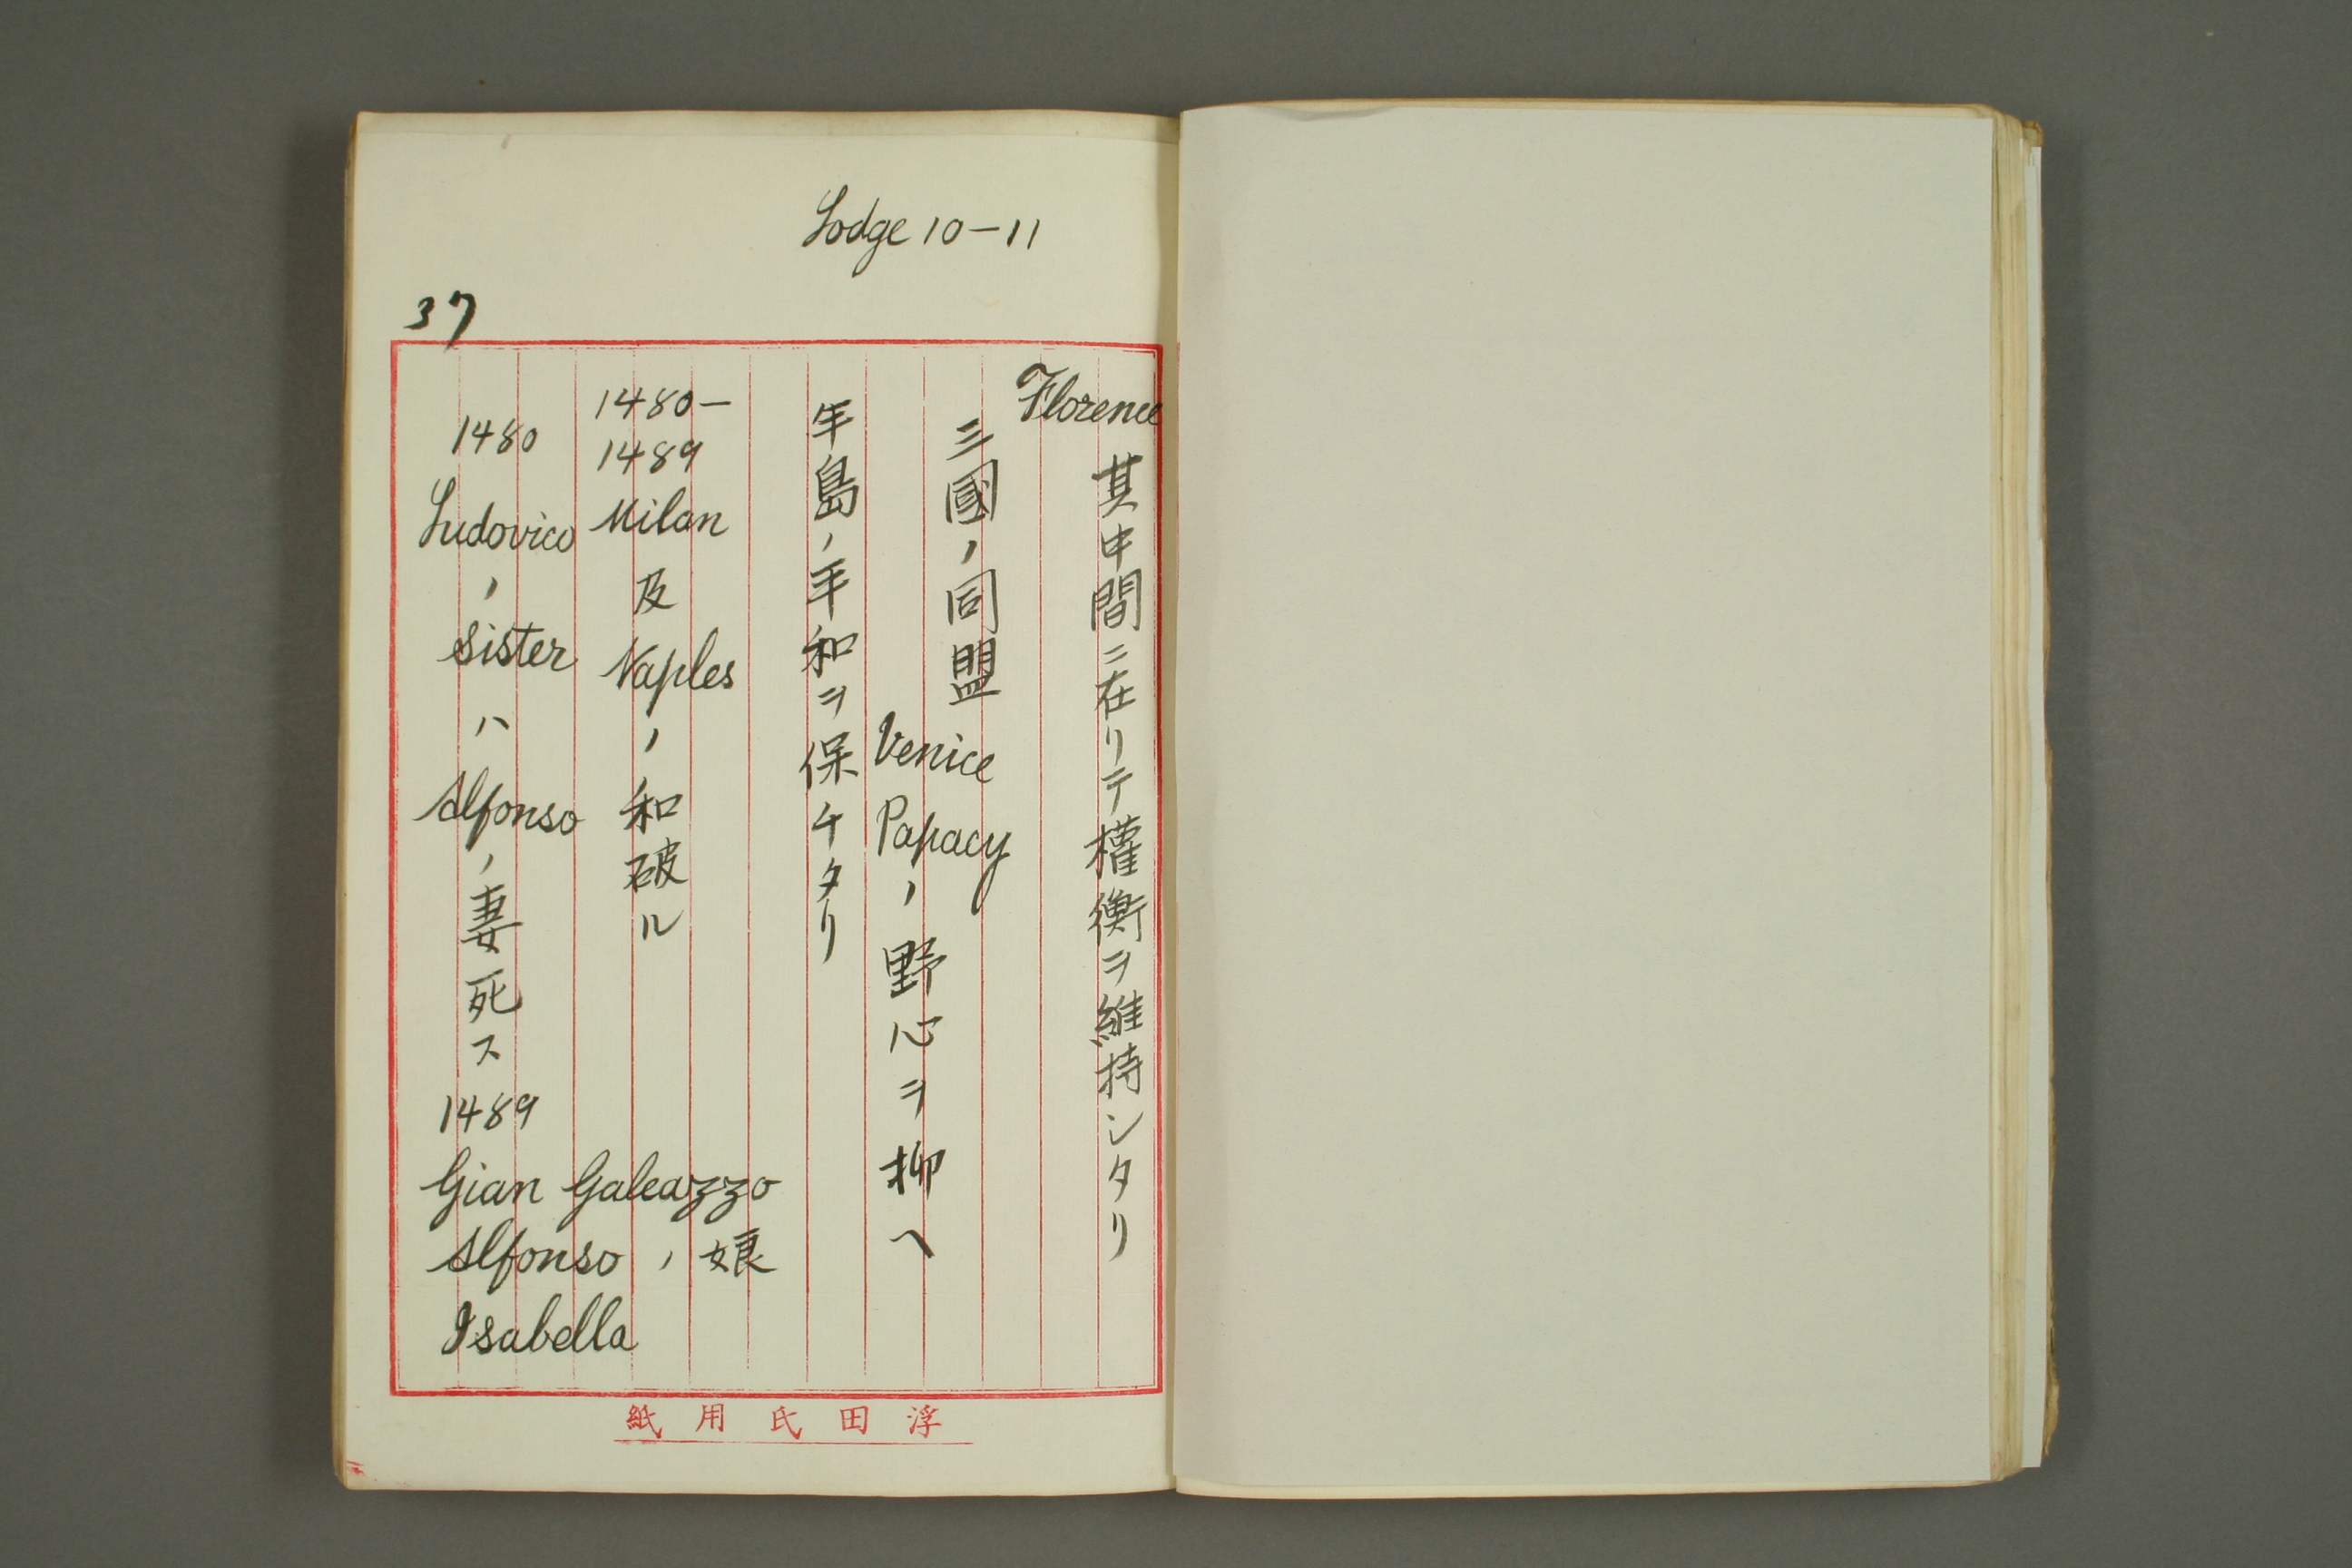 Lodge 10-11
37
Florence 其中間ニ在リテ權衡ヲ維持シタリ
三國ノ同盟
Venice
Papacyノ野心ヲ抑ヘ
半島ノ平和ヲ保チタリ
1480-
1489
Milan
及
Naples
ノ和破ル
1480
Ludovico
ノ
sister
ハ
Alfonso
ノ妻死ス
1489
Gian Galeazzo
Alfonsoノ娘
Isabella
浮田氏用紙